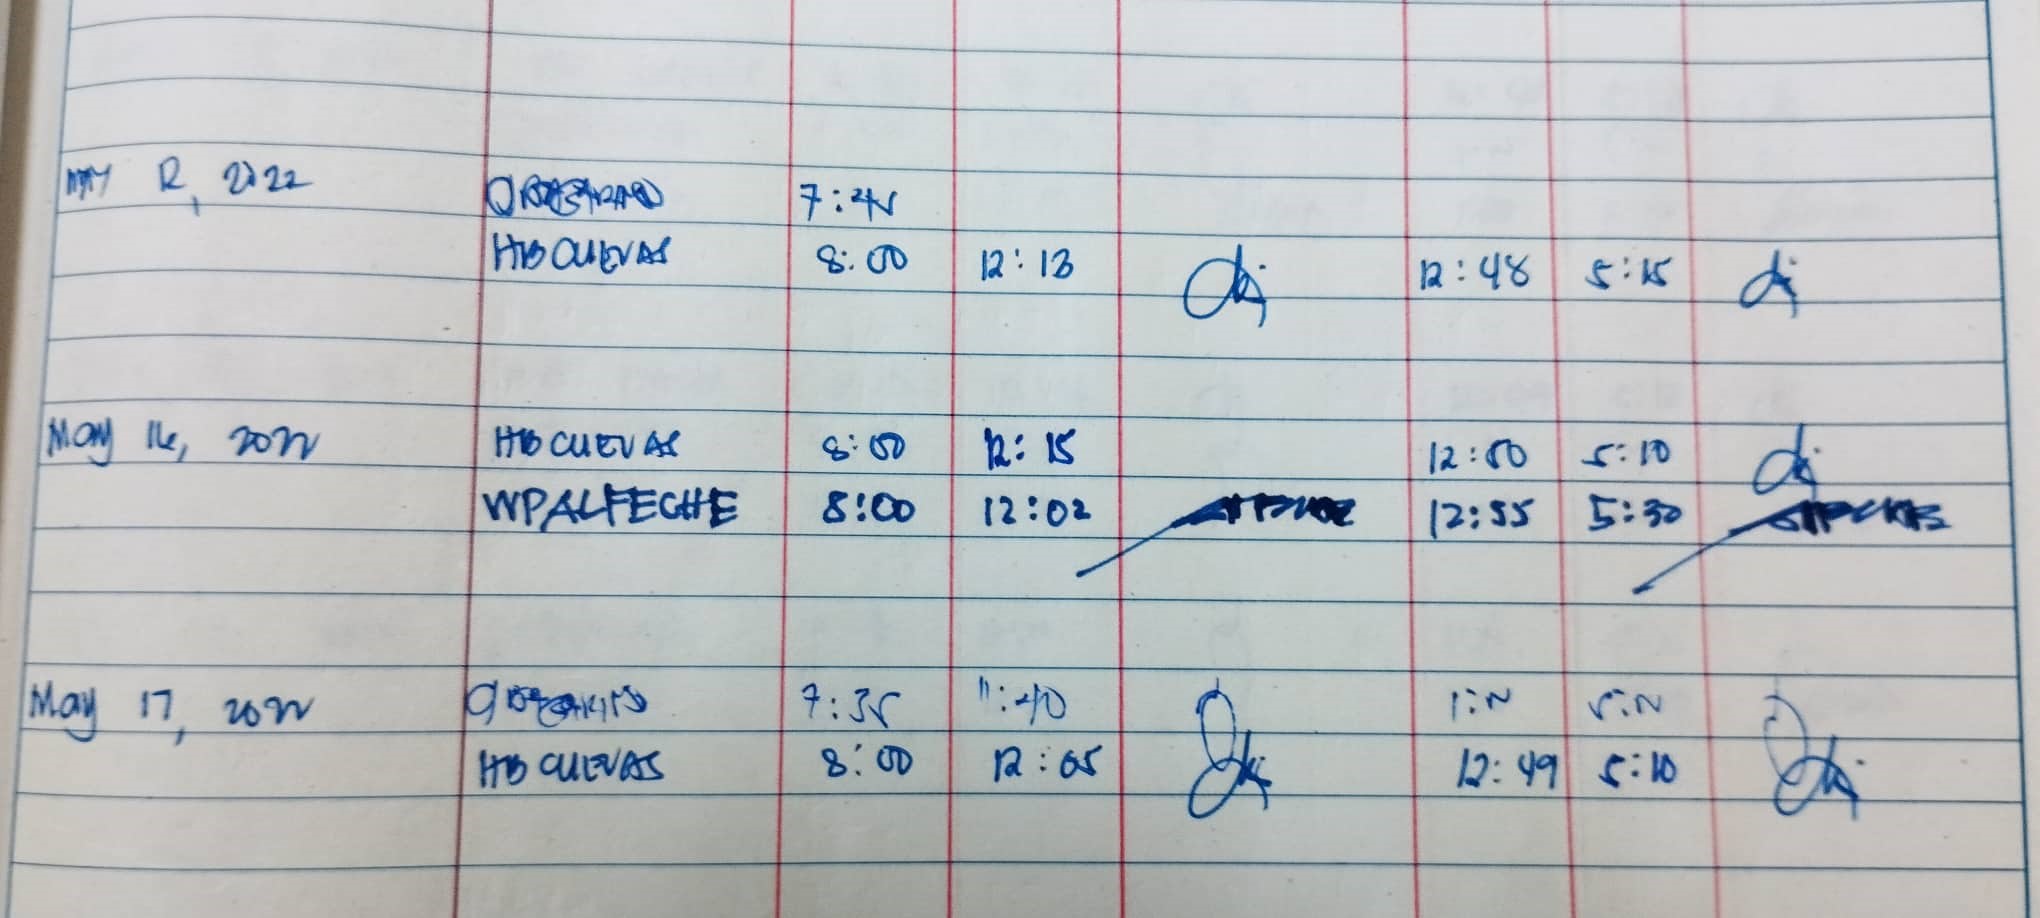 May 12, 2022
7:45
HB CUEVAS 8:00 12:13 12:48 5:15
May 16, 2022 HB CUEVAS 8:00 12:15 12:50 5:10
WPALFECHE 8:00 12:02 12:55 5:30
May 17, 2022 7:35 11:40
HB CUEVAS 8:00 12:05 12:49 5:10